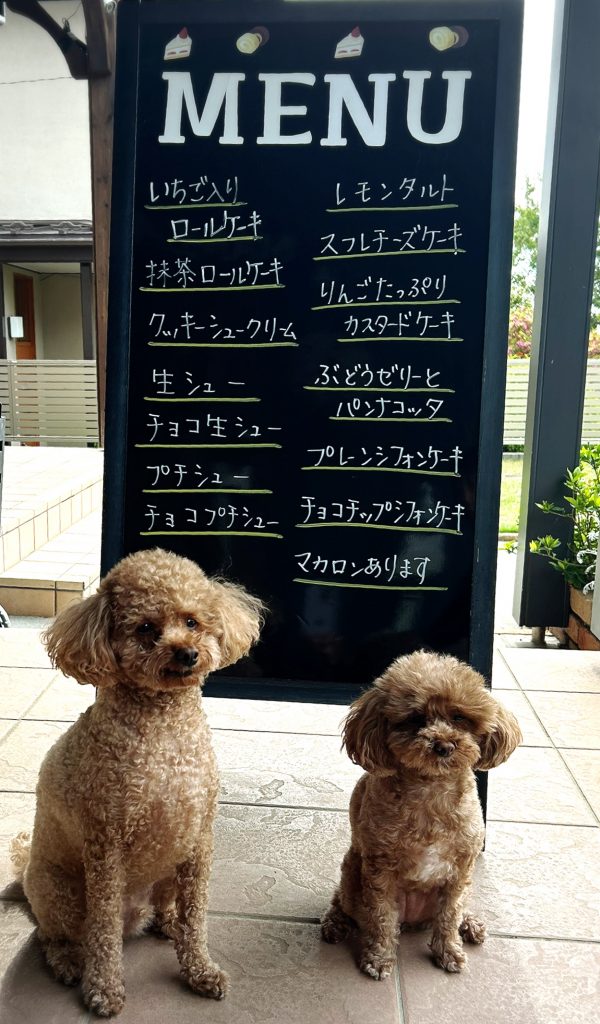 MENU
いちご入り
ロールケーキ
抹茶ロールケーキ
クッキーシュークリーム
生シュー
チョコ生シュー
プチシュー
チョコプチシュー
レモンタルト
スフレチーズケーキ
りんごたっぷり
カスタードケーキ
ぶどうゼリーと
パンナコッタ
プレーンシフォンケーキ
チョコチップシフォンケーキ
マカロンあります